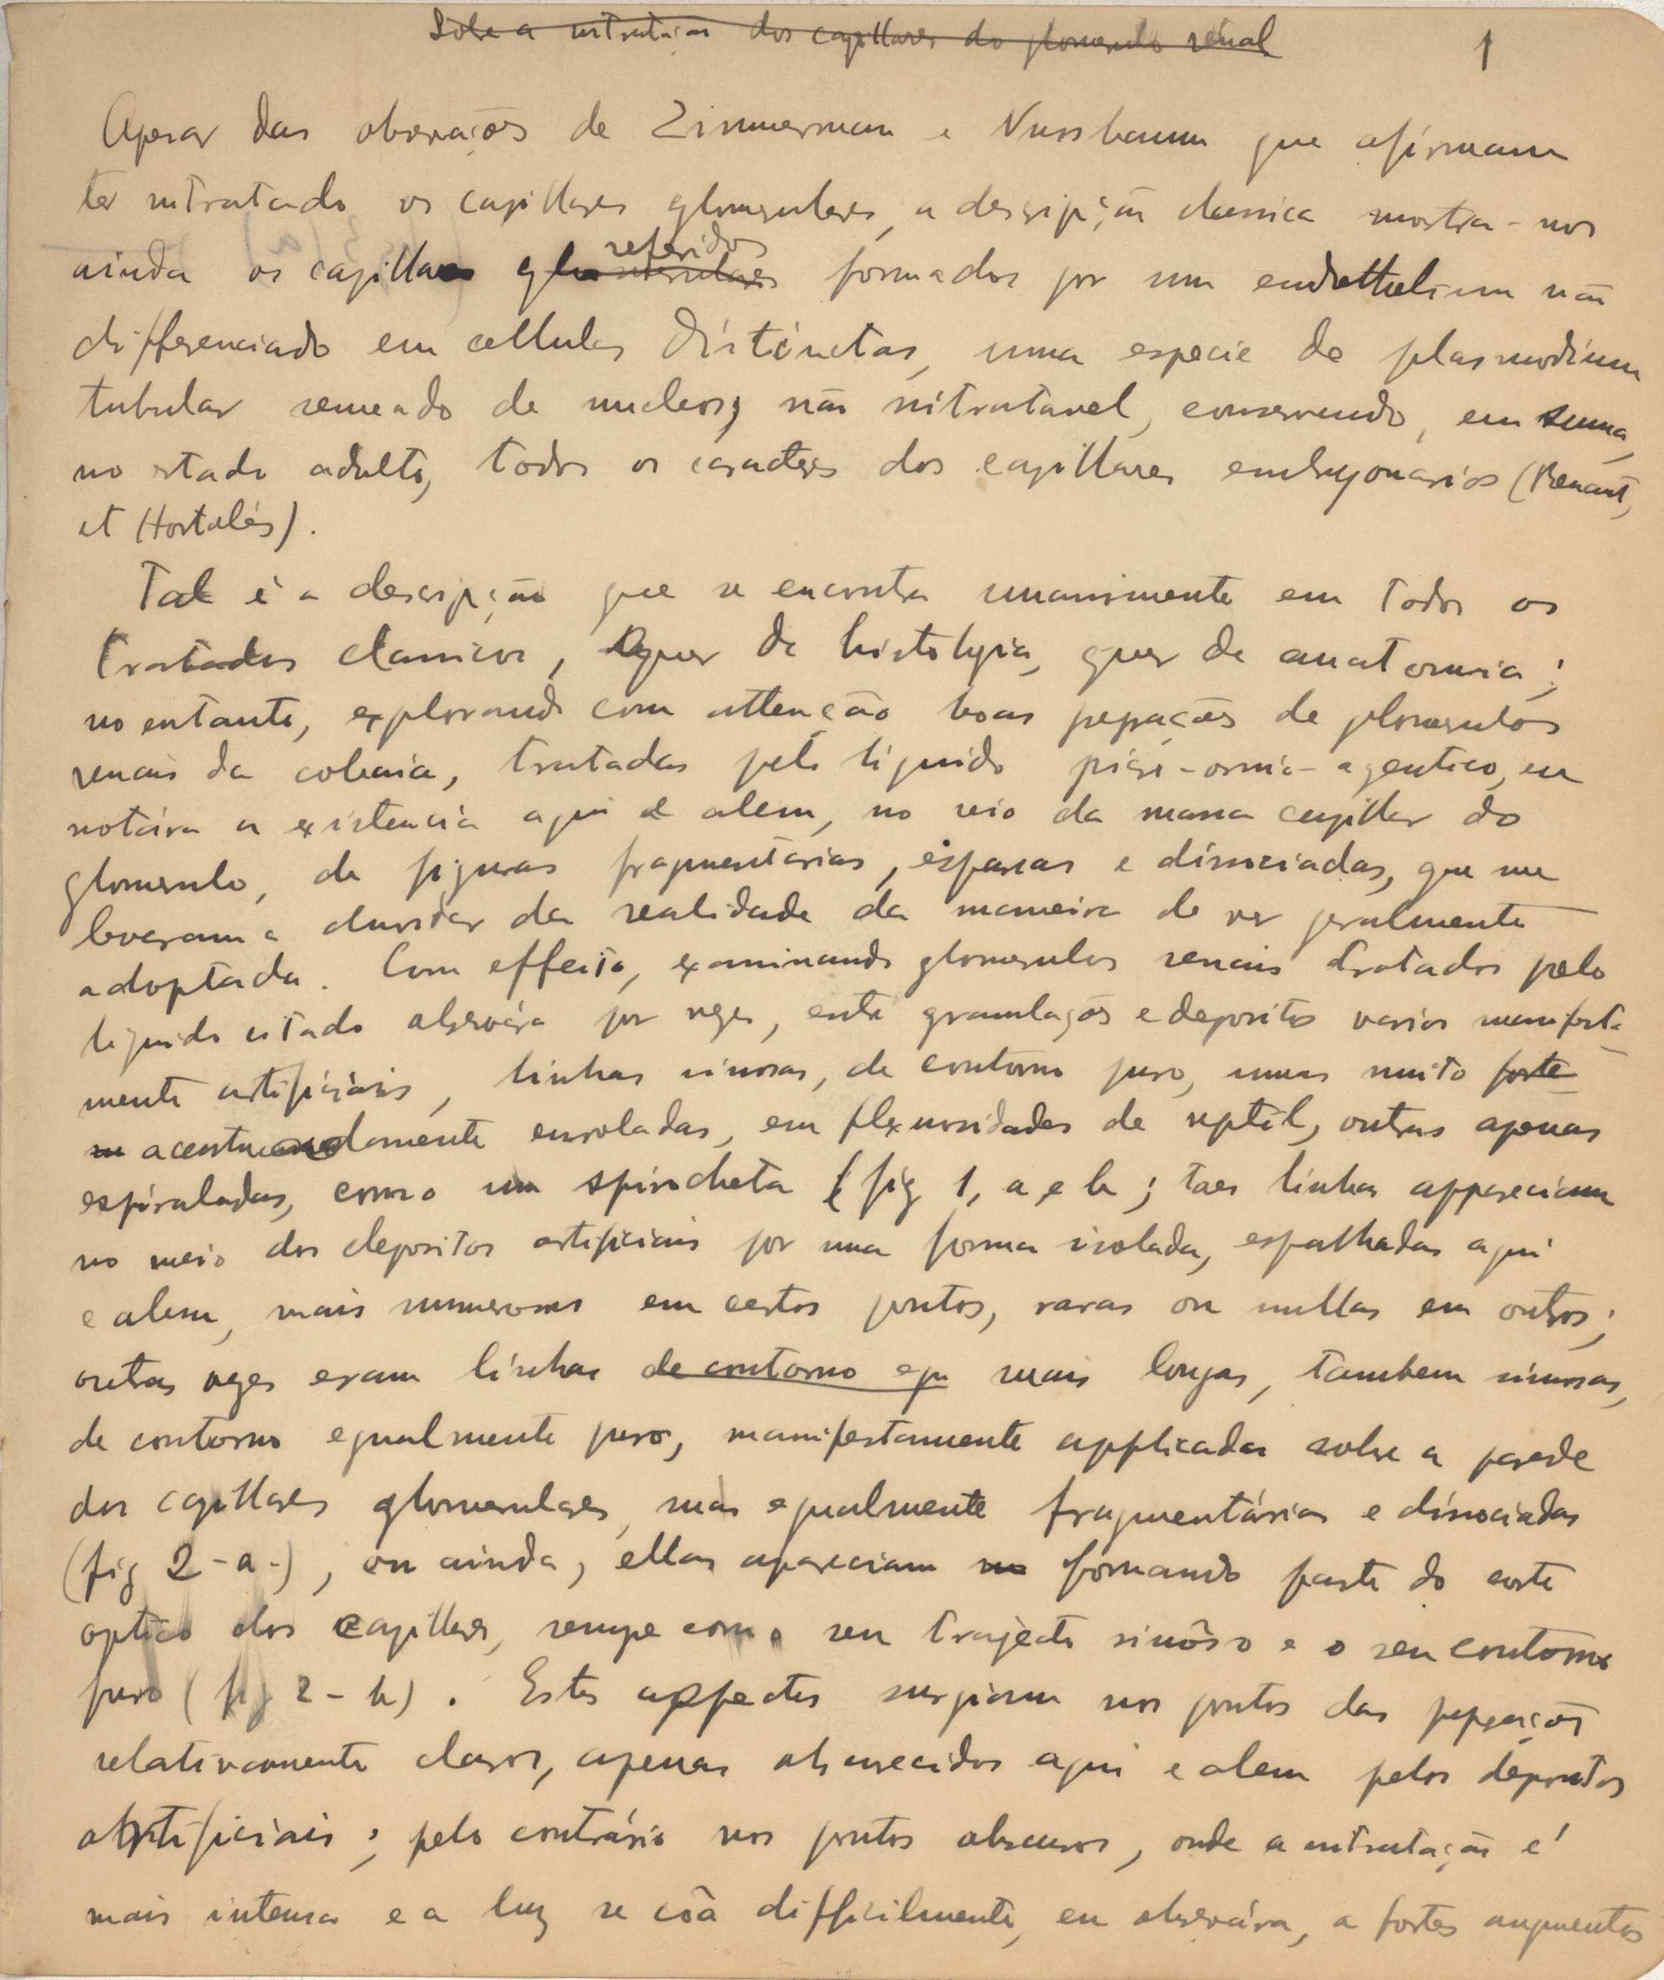 Sobre a nitratação dos capillares do glomerulo renal
1
Apesar das observações de Zimmerman e Nussbaum que afirmam
ter nitratado os capillares glomerulares, a descripção classica mostra-nos
referidos
ainda os capillares glomerulares formados por um endothelium não
differenciado em cellulas distinctas, uma especie de plasmodium
tubular semeado de nucleos, não nitratavel, conservando, em suma,
no estado adulto, todos os caracteres dos capillares embryonarios (Renaut,
et Hortolés).
Tal é a descripção que se encontra unanimente em todos os
tratados classicos, quer de histologia, quer de anatomia;
no entanto, explorando com attenção boas pepações de glomerulos
renais da cobaia, tratadas pelo liquido picro-osmio-argentico, eu
notára a existencia aqui e alem, no seio da massa capillar do
glomerulo, de figuras fragmentarias, esparsas e dissociadas, que me
levaram a duvidar da realidade da maneira de ver geralmente
adoptada. Com effeito, examinando glomerulos renais tratados pelo
liquido citado observára por vezes, entre granulações e depositos varios manifesta-
mente artificiais, linhas sinosas, de contorno puro, umas muito forte
acentuadamente enroladas, em flexuosidades de reptil, outras apenas
espiraladas, como um spirocheta (fig 1, a e b; taes linhas appareciam
no meio dos depositos artificiais por uma forma isolada, espalhadas aqui
e alem, mais numerosas em certos pontos, raras ou nullas em outros;
outras vezes eram linhas de contorno egu mais longas, tambem sinosas,
de contorno egualmente puro, manifestamente applicadas sobre a parede
dos capillares glomerulares, mas egualmente fragmentárias e dissociadas
(fig 2 - a -), ou ainda, ellas apareciam formando parte do corte
optico dos capillares, sempe com o seu trajecto sinôso e o seu contorno
puro (fig 2 - b). Estes aspectos surgiam nos pontos das pepações
relativamente claros, apenas obscurecidos aqui e alem pelos depositos
artificiais; pelo contrário nos pontos obscuros, onde a nitratação é
mais intensa e a luz se côa difficilmente, eu observára, a fortes augmentos